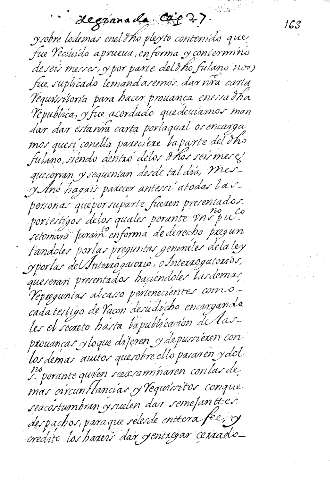 de granada. Cap 27.
163
y sobre lo demas en el dho pleyto contenido que
fue Reciuido a prueua, en forma y con termino
de seis messes, y por parte del dho fulano nos
fue suplicado le mandasemos dar nra carta
Requisitoria para hacer prouança en essa dha
Republica, y fue acordado que deuiamos man
dar dar esta nra carta por la qual os encarga
mos que si con ella pareciere la parte del dho
fulano, siendo dentro de los dhos seis meses
que corran, y se quentan desde tal dia, Mes
y Año hagais parecer ante si a todas las
personas que por su parte fueren presentados
por testigos de los quales por ante
se tome juram.to en forma de derecho pregun
tandoles por las preguntas generales de la ley
y por las del Interrogatorio, o Interrogatorios,
que seran presentados haciendoles las demas
Repreguntas al caso pertenecientes como
cada testigo de raçon de su dicho encargando
les el secreto hasta la publicacion de las
prouanças y lo que dixeren, y depussieren con
los demas autos que sobre ello pasaren y del
por ante quien se examinaren con las de
mas circunstancias, y Requisitos con que
se acostumbran, y suelen dar semejantes
despachos, para que se les de entera fee, y
credito los hareis dar y entregar cerrado